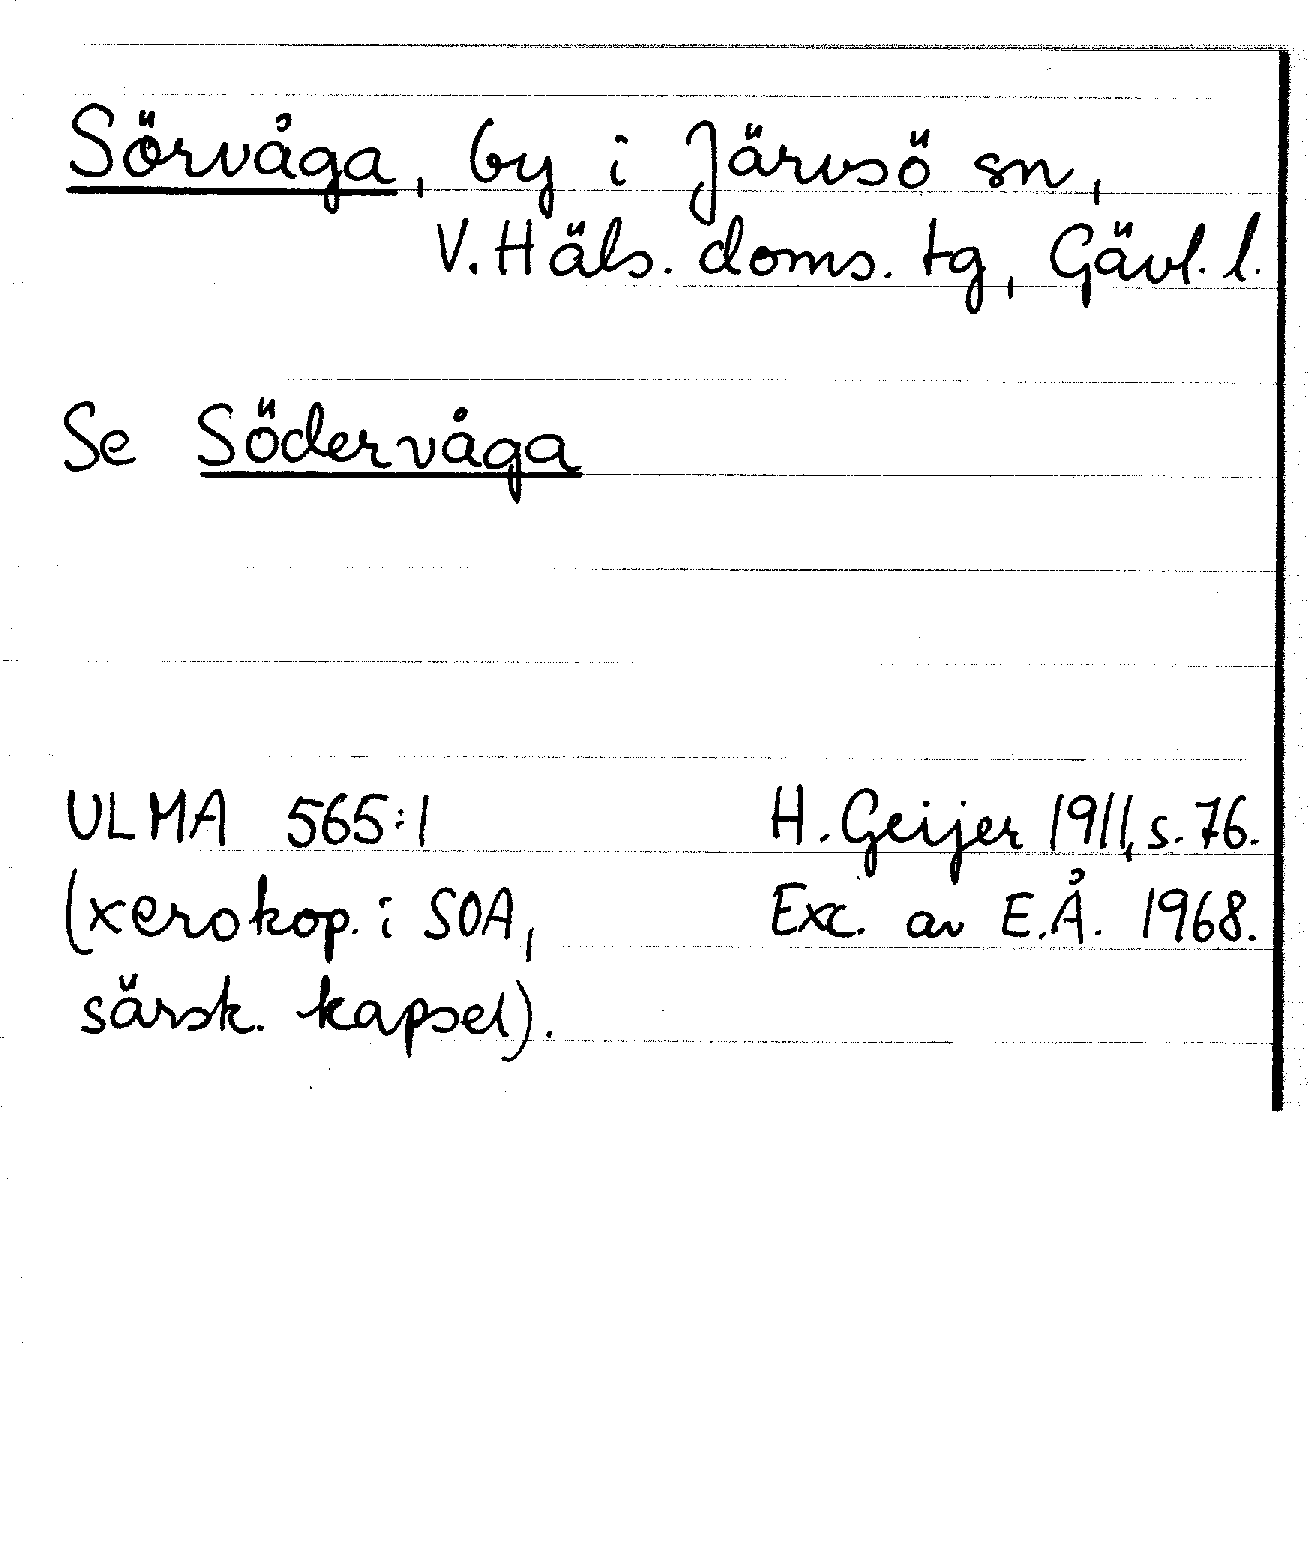 Sörvåga, by i Järvsö sn,
V. Häls. doms. tg, Gävl. l.
Se Södervåga
ULMA 565:1
(xerokop. i SOA,
särsk. kapsel).
H. Geijer 1911, s. 76.
Exc. av E.Å. 1968.